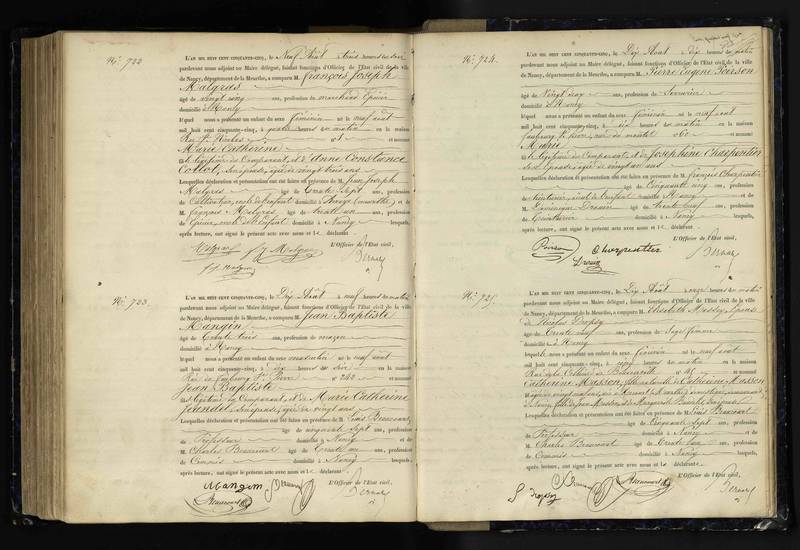 N° 722
L'AN MIL HUIT CENT CINQUANTE-CINQ, le Neuf Août heures du soir
pardevant nous adjoint au Maire délégué, faisant fonctions d'Officier de l'Etat civil de la ville
de Nancy, département de la Meurthe, a comparu M. François Joseph
Malgras
âgé de vingt cinq ans, profession de
domicilié à Nancy
lequel nous a présenté un enfant du sexe féminin né le neuf août
mil huit cent cinquante-cinq, à quatre heures du matin en la maison
Rue St. Nicolas n° et nommé
Marie Catherine
fille légitime du Comparant, et d'Anne Constance
Collot, son épouse, âgée de vingt trois ans
Lesquelles déclaration et présentation ont été faites en présence de M. Jean Joseph
Malgras âgé de trente sept ans, profession
de Cultivateur, oncle de l'enfant domicilié à (Meurthe) et de
M. François Malgras âgé de trente un ans, profession
de oncle de l'enfant domicilié à Nancy lesquels,
après lecture, ont signé le présent acte avec nous et le déclarant
L'Officier de l'Etat civil,
Malgras J. J. Malgras Bernard
N° 723.
L'AN MIL HUIT CENT CINQUANTE-CINQ, le Dix Août à neuf heures du matin
pardevant nous adjoint au Maire délégué, faisant fonctions d'Officier de l'Etat civil de la ville
de Nancy, département de la Meurthe, a comparu M. Jean Baptiste
Mangin
âgé de trente trois ans, profession de maçon
domicilié à Nancy
lequel nous a présenté un enfant du sexe masculin né le neuf août
mil huit cent cinquante-cinq, à six heures du soir en la maison
Rue du faubourg St. Pierre n° 242 et nommé
Jean Baptiste
fils légitime du Comparant, et de Marie Catherine
son épouse, âgée de vingt ans
Lesquelles déclaration et présentation ont été faites en présence de M. Louis Beaucourt,
âgé de cinquante sept ans, profession
de Professeur domicilié à Nancy et de
M. Charles Beaucourt âgé de trente un ans, profession
de Commis domicilié à Nancy lesquels,
après lecture, ont signé le présent acte avec nous et le déclarant
L'Officier de l'Etat civil,
Mangin Bernard
Beaucourt
N° 724.
L'AN MIL HUIT CENT CINQUANTE-CINQ, le Dix Août dix heures du matin
pardevant nous adjoint au Maire délégué, faisant fonctions d'Officier de l'Etat civil de la ville
de Nancy, département de la Meurthe, a comparu M. Pierre Eugène Poirson
âgé de vingt six ans, profession de Serrurier
domicilié à Nancy
lequel nous a présenté un enfant du sexe féminin né le neuf août
mil huit cent cinquante-cinq, à dix heures du matin en la maison
faubourg St. Pierre, n° 60 et nommé
Marie
fille légitime du Comparant, et de Joséphine Charpentier
son épouse, âgée de vingt un ans
Lesquelles déclaration et présentation ont été faites en présence de M. François Charpentier
âgé de cinquante cinq ans, profession
de de l'enfant domicilié à Nancy et de
M. Dominique Drouin âgé de trente neuf ans, profession
de domicilié à Nancy lesquels,
après lecture, ont signé le présent acte avec nous et le déclarant
L'Officier de l'Etat civil,
Poirson Charpentier Bernard
Drouin
N° 725.
L'AN MIL HUIT CENT CINQUANTE-CINQ, le Dix Août à onze heures du matin
pardevant nous adjoint au Maire délégué, faisant fonctions d'Officier de l'Etat civil de la ville
de Nancy, département de la Meurthe, a comparu M. Elisabeth épouse
de Nicolas Dropsy
âgée de trente ans, profession de Sage femme
domiciliée à Nancy
laquelle nous a présenté un enfant du sexe féminin né le neuf août
mil huit cent cinquante-cinq, à cinq heures du matin en la maison
Rue n° 48 et nommé
Catherine Masson, fille naturelle de Catherine Masson
âgée de vingt
à Nancy, fille de Jean Masson, et de Marguerite
Lesquelles déclaration et présentation ont été faites en présence de M. Louis Beaucourt
âgé de cinquante sept ans, profession
de Professeur domicilié à Nancy et de
M. Charles Beaucourt âgé de trente un ans, profession
de Commis domicilié à Nancy lesquels,
après lecture, ont signé le présent acte avec nous et la déclarante.
L'Officier de l'Etat civil,
Dropsy Beaucourt Bernard